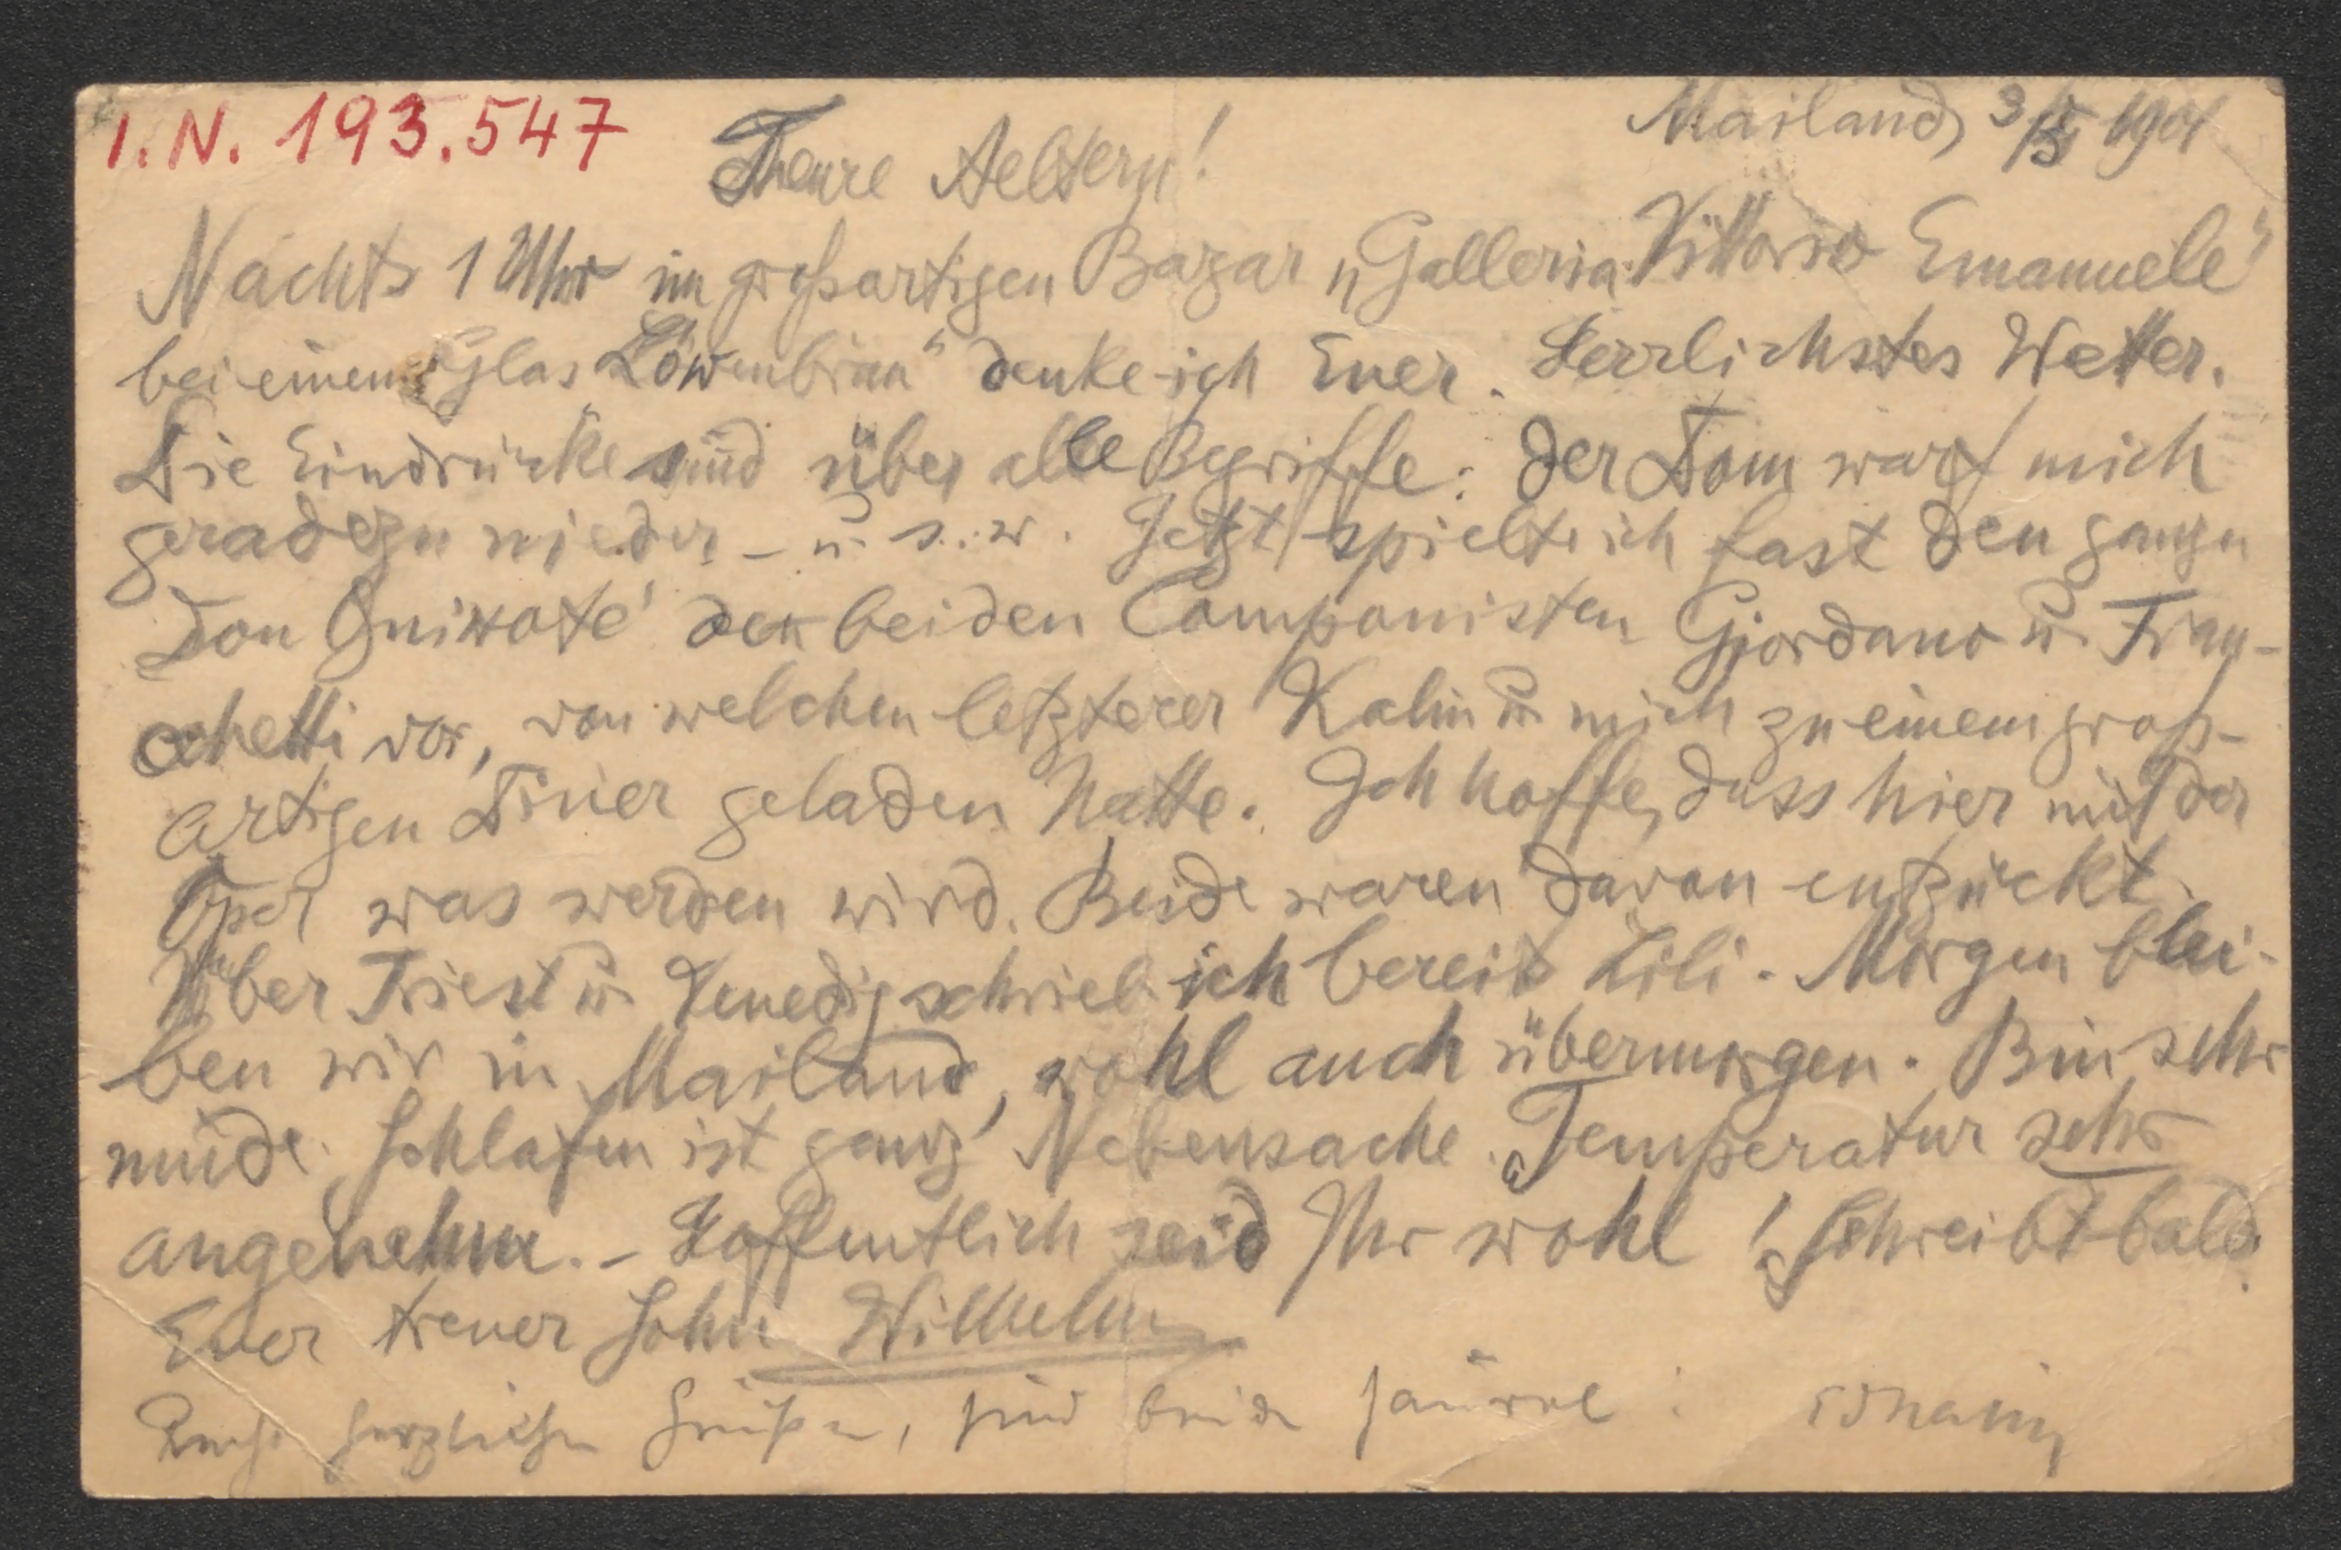 I.N. 193.547
Mailand, 3/IX 1901
Theure Aeltern!
Nachts 1 Uhr im großartigen Bazar „Galleria Vittorio Emanuele“
bei einem Glas Löwenbräu“ denke ich Euer. Herrlichstes Wetter.
Die Eindrücke sind über alle Begriffe: Der Dom warf mich
geradezu nieder – u. s. w. Jetzt spielte ich fast den ganzen
Don Quixote' den beiden Componisten Giordano u. Fran-
chetti vor, von welchen letzterer Kalm u. mich zu einem groß-
artigen Diner geladen hatte. Ich hoffe, dass hier mit der
Oper was werden wird. Beide waren davon entzückt.
Über Triest u. Venedig schrieb ich bereits Lili. Morgen blei-
ben wir in Mailand, wohl auch übermorgen. Bin sehr
müde. Schlafen ist ganz Nebensache. Temperatur sehr
angenehm. – Hoffentlich seid Ihr wohl! Schreibt bald.
Euer treuer Sohn Wilhelm
herzliche Grüße, sind beide